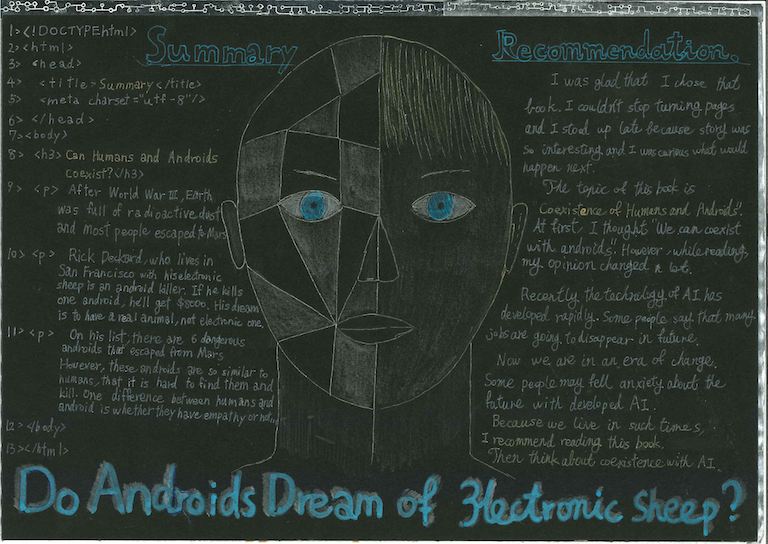 Summary
1> <!DOCTYPEhtml>
2> <html>
3> <head>
4> <title>Summary</title>
5> <meta charset="utf-8"/>
6> </head>
7> <body>
8> <h3> Can Humans and Androids
coexist?</h3>
9> <p> After World War III, Earth
was full of radioactive dust
and most people escaped to Mars
10> <p> Rick Deckard, who lives in
San Francisco with his electronic
sheep is an android killer. If he kills
one android, he'll get $8000. His dream
is to have a real animal, not electronic one.
11> <p> On his list, there are 6 dangerous
androids that escaped from Mars
However, these androids are so similar to
humans, that it is hard to find them and
kill. One difference between humans and
android is whether they have empathy or not.
12> </body>
13> </html>
Recommendation.
I was glad that I chose that
book. I couldn't stop turning pages
and I stood up late because story was
so interesting and I was curious what would
happen next.
The topic of this book is
"Coexistence of Humans and Androids".
At first, I thought "We can coexist
with androids". However, while reading,
my opinion changed a lot.
Recently the technology of AI has
developed rapidly. Some people say that many
jobs are going to disappear in future.
Now we are in an era of change.
Some people may fell anxiety about the
future with developed AI.
Because we live in such times,
I recommend reading this book.
Then think about coexistence with AI.
Do Androids Dream of Electronic Sheep?